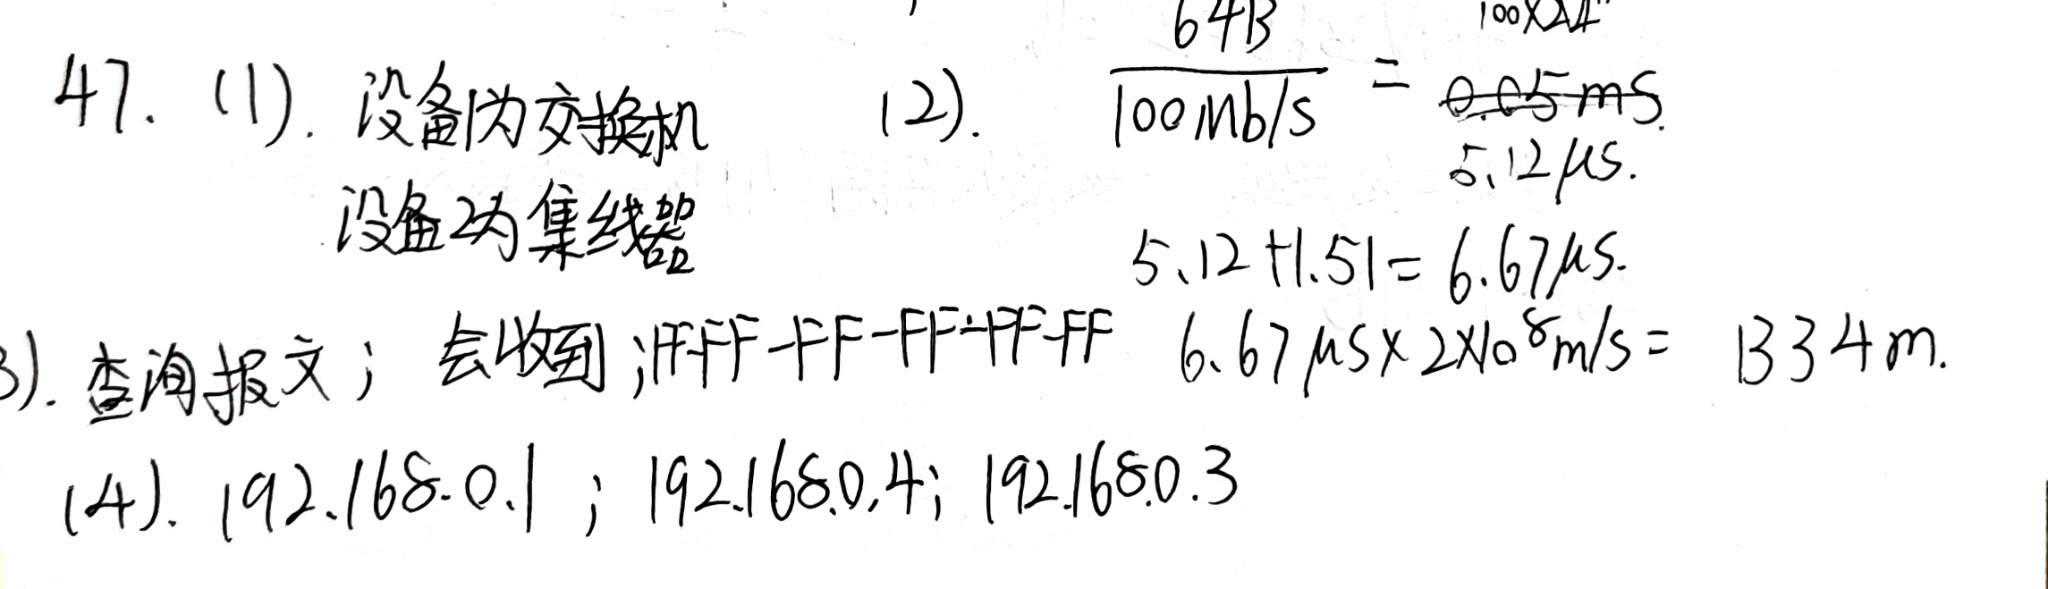 47. (1). 设备1为交换机
设备2为集线器
(2). 64B / 100Mb/s = 0.05ms.
5.12μs.
5.12+1.51=6.67μs.
6.67μs×2×10⁸m/s= 1334m.
3). 查询报文；会收到；FF-FF-FF-FF-FF-FF
(4). 192.168.0.1；192.168.0.4；192.168.0.3